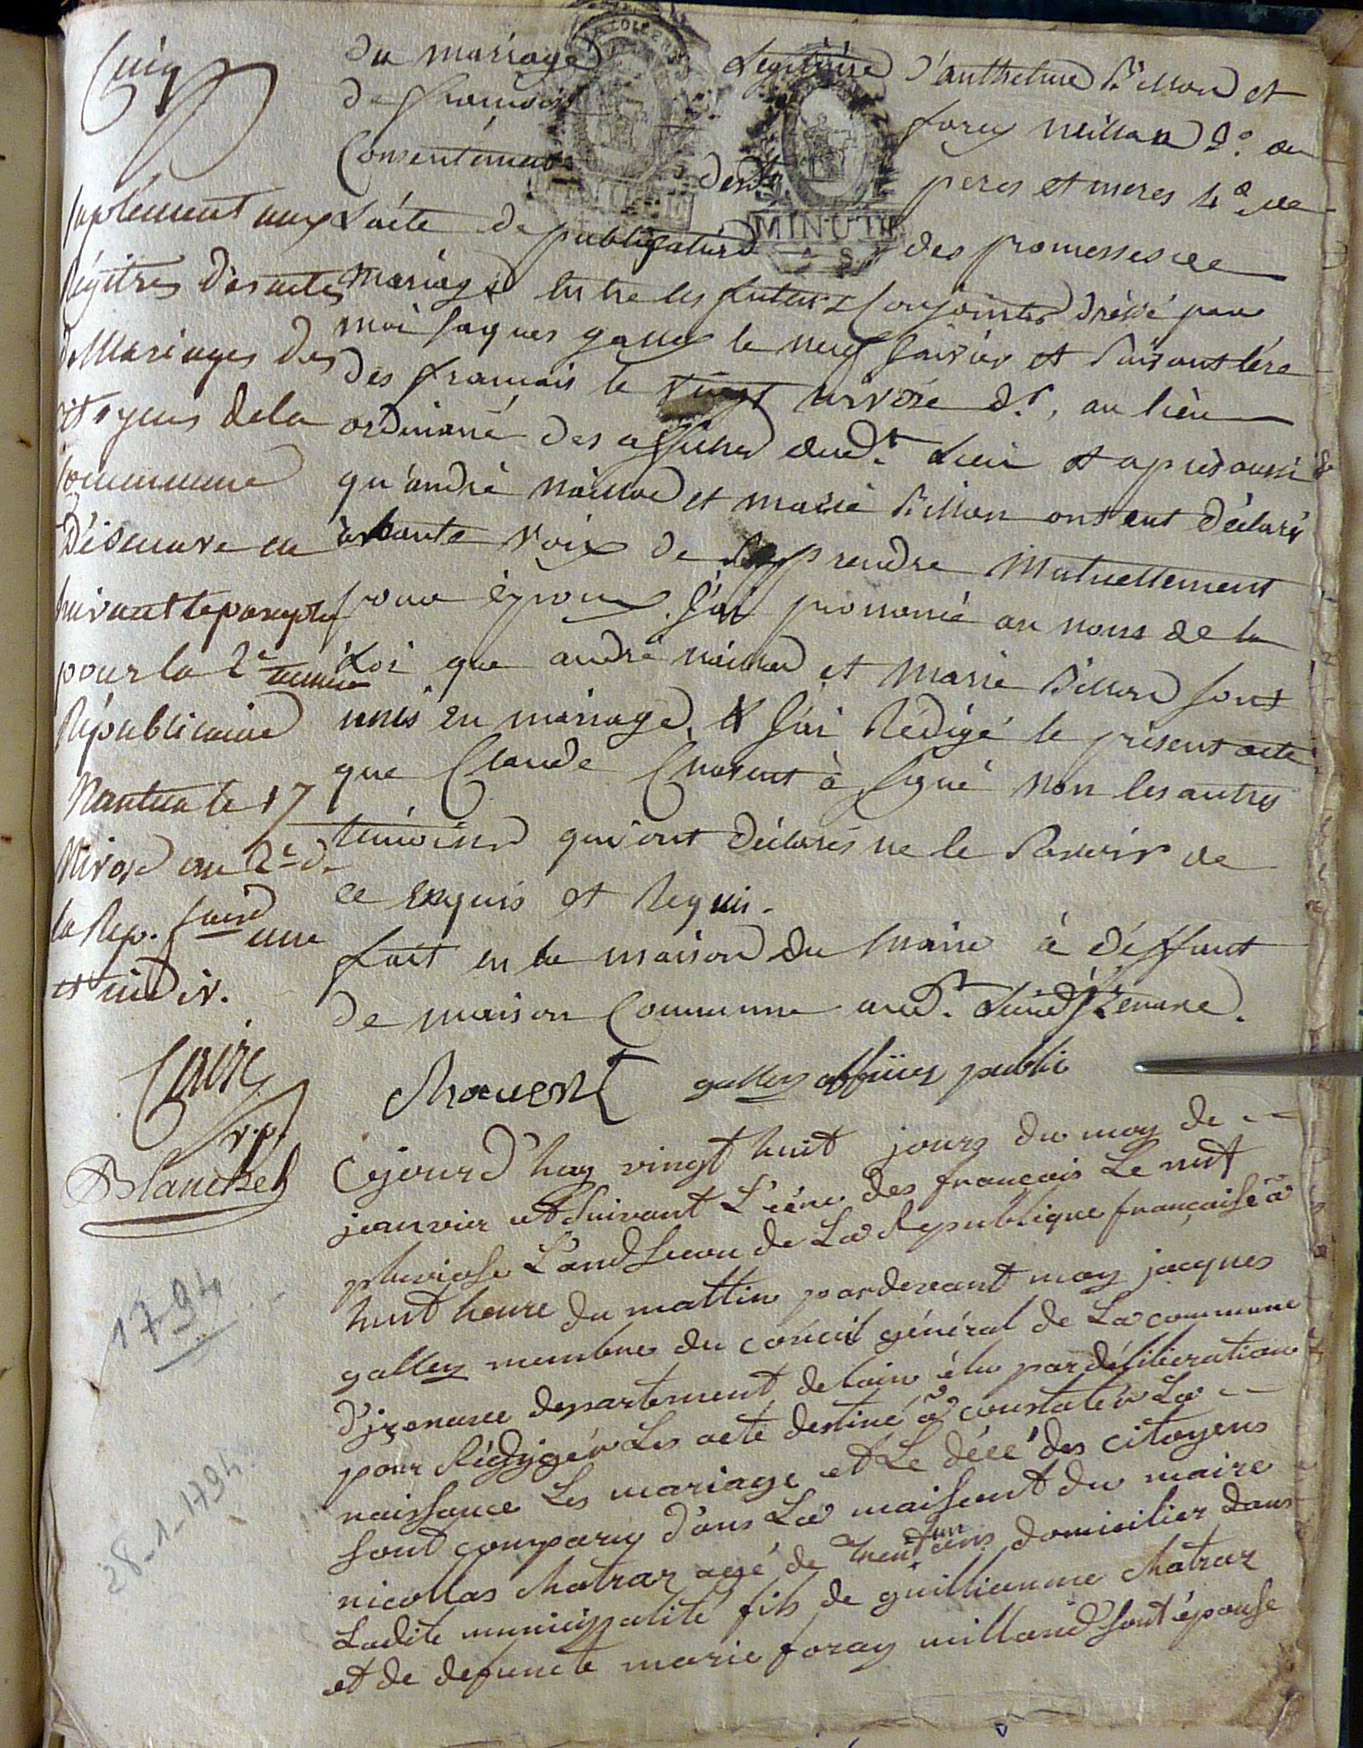 Cinq
Suplément aux
Régitres des actes
de Mariages des
citoyens de la
Commune
D'isenave en
suivant le paraphe
pour la 2e année
Républicaine
Nantua le 17
Nivose an 2e de
la Rep. une
et indiv.
Blanchet
1794
28-1-1794
du mariage légitime d'anthelme Billion et
de françoise foray millian 3o. du
Consentement desd. peres et meres 4o. de
L'acte de publication des promesses de
MINUTE
mariage entre les futurs Conjoints drèssé par
moi Jaques galley le neuf Janvier et suivant l'ère
des français le vingt nivose dt. au lieu
ordinaire des affiches dudt. Lieu et après aussi
qu'andré et marie Billion ont eut déclaré
à haute voix de se prendre mutuellement
pour époux. J'ai prononcé au nom de la
Loi que andré et Marie Billion sont
unis en mariage, & J'ai Rédigé le présent acte
que Claude Chavent à Signé non les autres
témoins qui ont déclarés ne le Savoir de
ce enquis et Requis.
fait en la maison du Maire à déffaut
de maison Commune audt. Lieu d'Izenave.
Chavent galley officier public
Cejourd'huy vingt huit jours du moy de
janvier et Suivant L'ére des français Le neuf
pluviose L'and Second de La Republique française à
huit heure du mattin pardevant moy jacques
galley membre du conceil général de La commune
d'izenave departement de lain élu par délibieration
pour Rédygér Les acte destiné à constater La
naissance Les mariage et Le décé des citoyens
Sont comparu dans La maisont du maire
nicollas Chatraz agé de trent un ans domicilier dans
Ladite municipalité fils de guilliaume Chatraz
et de defuncte marie foray milland Sont épouse